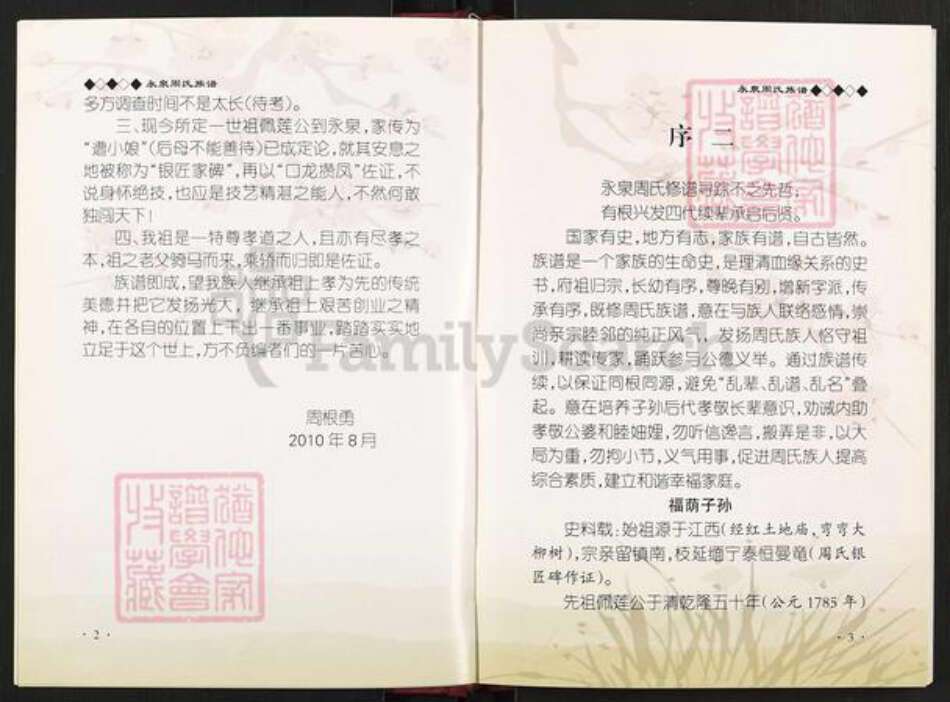 永泉周氏族谱
多方调查时间不是太长(待考)。
三、现今所定一世祖佩莲公到永泉，家传为
“遭小娘”(后母不能善待)已成定论，就其安息之
地被称为“银匠家碑”，再以“口龙攒凤”佐证，不
说身怀绝技，也应是技艺精湛之能人，不然何敢
独闯天下！
四、我祖是一特尊孝道之人，且亦有尽孝之
本，祖之老父骑马而来，乘轿而归即是佐证。
族谱即成，望我族人继承祖上孝为先的传统
美德并把它发扬光大，继承祖上艰苦创业之精
神，在各自的位置上干出一番事业，踏踏实实地
立足于这个世上，方不负编者们的一片苦心。
周根勇
2010年8月
·2·
永泉周氏族谱
序二
永泉周氏修谱寻踪不乏先哲；
有根兴发四代续辈承启后贤。
国家有史，地方有志，家族有谱，自古皆然。
族谱是一个家族的生命史，是理清血缘关系的史
书，府祖归宗，长幼有序，尊晚有别，增新字派，传
承有序，既修周氏族谱，意在与族人联络感情，崇
尚亲宗睦邻的纯正风气，发扬周氏族人恪守祖
训，耕读传家，踊跃参与公德义举。通过族谱传
续，以保证同根同源，避免“乱辈、乱谱、乱名”叠
起。意在培养子孙后代孝敬长辈意识，劝诫内助
孝敬公婆和睦妯娌，勿听信谗言，搬弄是非，以大
局为重，勿拘小节，义气用事，促进周氏族人提高
综合素质，建立和谐幸福家庭。
福荫子孙
史料载：始祖源于江西(经红土地庙、弯弯大
柳树)，宗亲留镇南，枝延缅宁泰恒曼竜(周氏银
匠碑作证)。
先祖佩莲公于清乾隆五十年(公元1785年)
·3·
FamilySearch